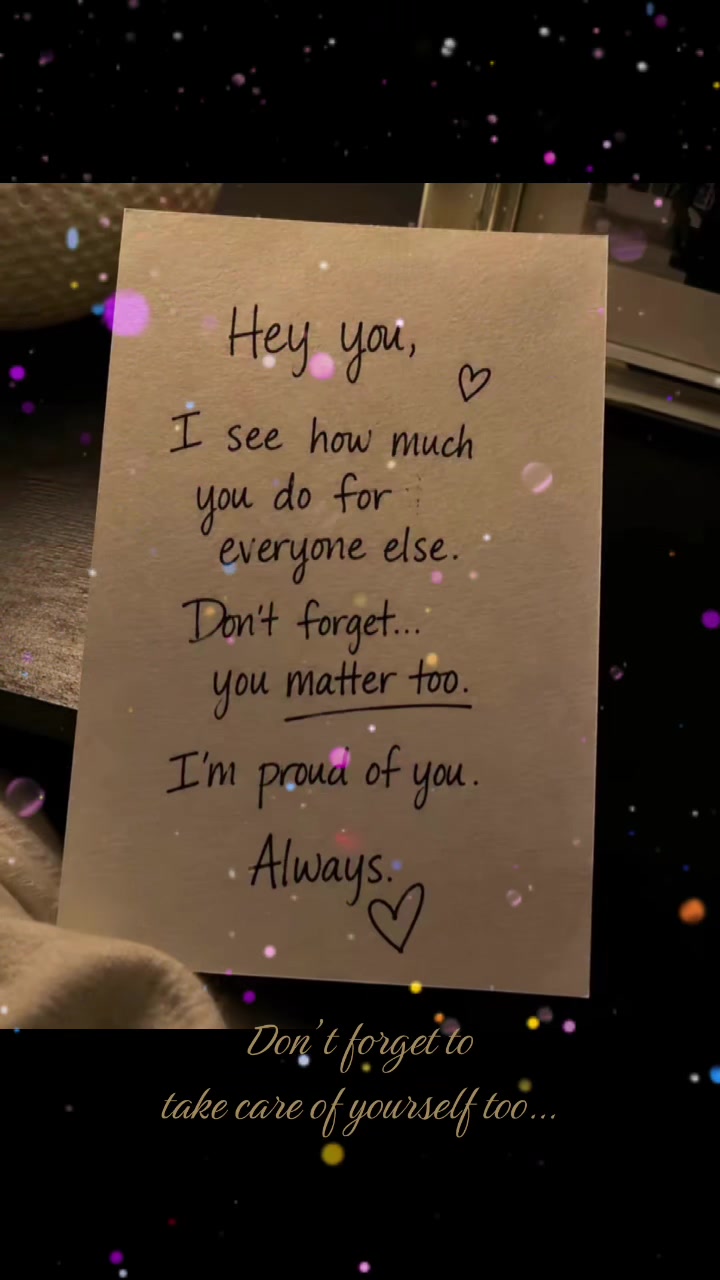 Hey you,
I see how much
you do for
everyone else.
Don't forget...
you matter too.
I'm proud of you.
Always.
Don't forget to
take care of yourself too...